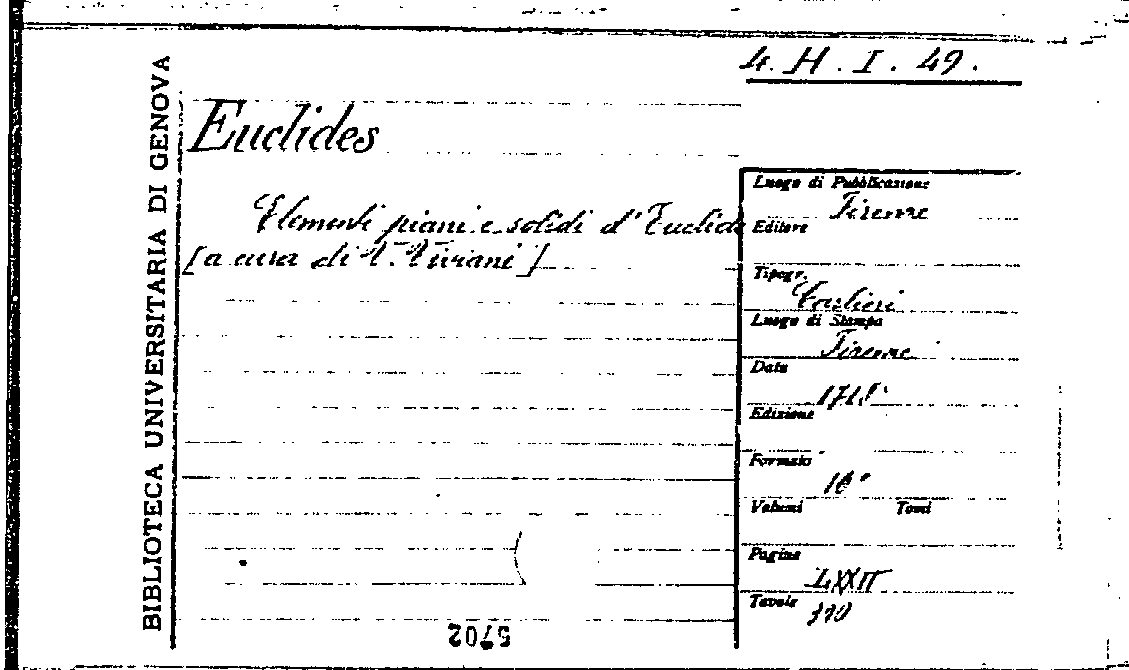 4. H. I. 49.
BIBLIOTECA UNIVERSITARIA DI GENOVA
Euclides
Elementi piani e solidi d'Euclide
[a cura di V. Viviani]
Luogo di Pubblicazione
Firenze
Editore
Tipogr.
Carlieri
Luogo di Stampa
Firenze
Data
1718
Edizione
Formato
16°
Volumi Tomi
Pagine
LXXII
Tavole
5702